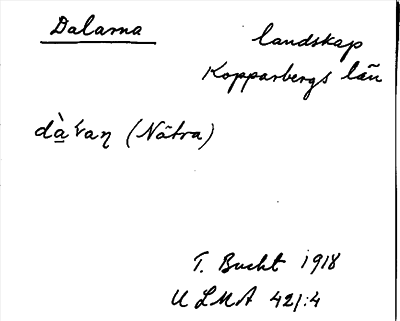 Dalarna
landskap
Kopparbergs län
dà̱ɽaṇ (Nätra)
T. Bucht 1918
ULMA 421:4